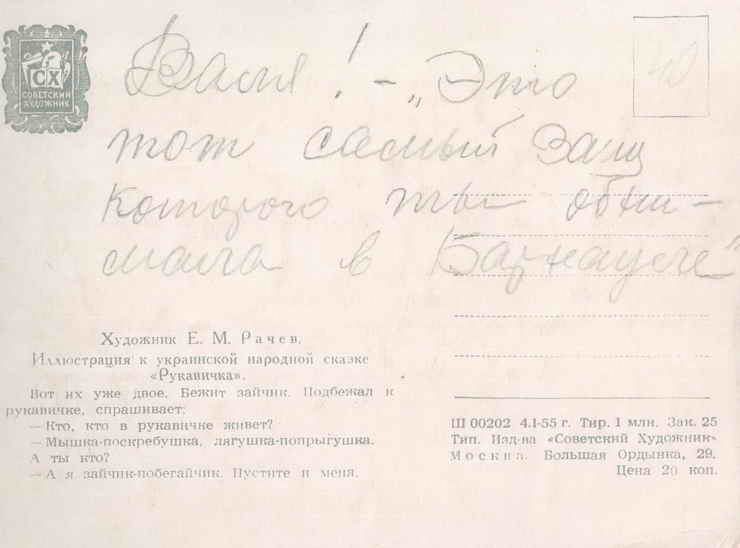 СХ
СОВЕТСКИЙ
ХУДОЖНИК
Валя! – „Это
тот самый Заяц
которого ты обни-
мала в Барнауле"
Художник Е. М. Рачев.
Иллюстрация к украинской народной сказке
«Рукавичка».
Вот их уже двое. Бежит зайчик. Подбежал к
рукавичке, спрашивает:
— Кто, кто в рукавичке живет?
— Мышка-поскребушка, лягушка-попрыгушка.
А ты кто?
— А я зайчик-побегайчик. Пустите и меня.
Ш 00202 4.I-55 г. Тир. 1 млн. Зак. 25
Тип. Изд-ва «Советский Художник»
Москва. Большая Ордынка, 29.
Цена 20 коп.